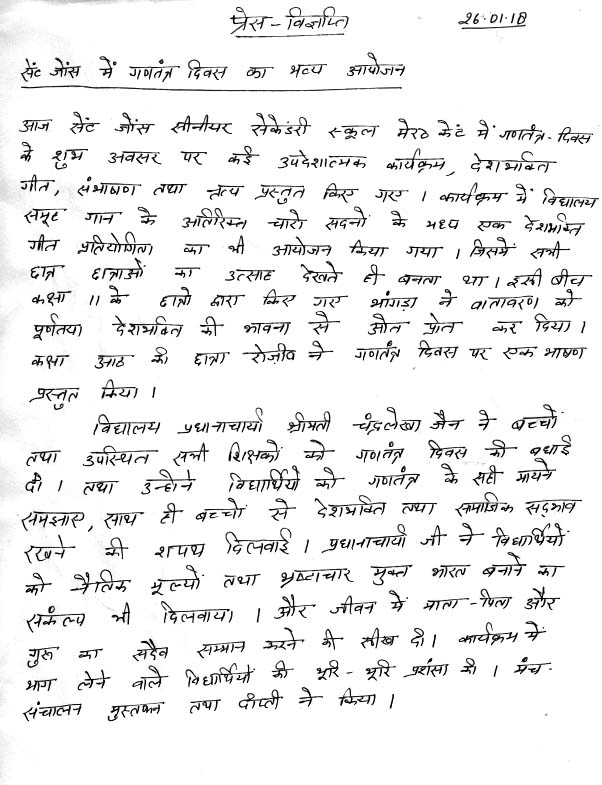 प्रेस - विज्ञप्ति
26.01.18
सेंट जोंस में गणतंत्र दिवस का भव्य आयोजन
आज सेंट जोंस सीनीयर सेकेंडरी स्कूल मेरठ केंट में गणतंत्र - दिवस
के शुभ अवसर पर कई उपदेशात्मक कार्यक्रम, देशभक्ति
गीत, संभाषण तथा नृत्य प्रस्तुत किए गए । कार्यक्रम में विद्यालय
समूह गान के अतिरिक्त चारो सदनों के मध्य एक देशभक्ति
गीत प्रतियोगिता का भी आयोजन किया गया । जिसमें सभी
छात्र छात्राओं का उत्साह देखते ही बनता था । इसी बीच
कक्षा 11 के छात्रो द्वारा किए गए भांगड़ा ने वातावरण को
पूर्णतया देशभक्ति की भावना से ओत प्रोत कर दिया ।
कक्षा आठ की छात्रा ने गणतंत्र दिवस पर एक भाषण
प्रस्तुत किया ।
विद्यालय प्रधानाचार्या श्रीमती चंद्रलेखा जैन ने बच्चों
तथा उपस्थित सभी शिक्षकों को गणतंत्र दिवस की बधाई
दी । तथा उन्होने विद्यार्थियों को गणतंत्र के सही मायने
समझाए, साथ ही बच्चों से देशभक्ति तथा सामाजिक सद्भाव
रखने की शपथ दिलवाई । प्रधानाचार्या जी ने विद्यार्थियों
को नैतिक मूल्यों तथा भ्रष्टाचार मुक्त भारत बनाने का
संकल्प भी दिलवाया । और जीवन में माता - पिता और
गुरू का सदैव सम्मान करने की सीख दी । कार्यक्रम में
भाग लेने वाले विद्यार्थियों की भूरि - भूरि प्रशंसा की । मंच
संचालन तथा दीप्ती ने किया ।